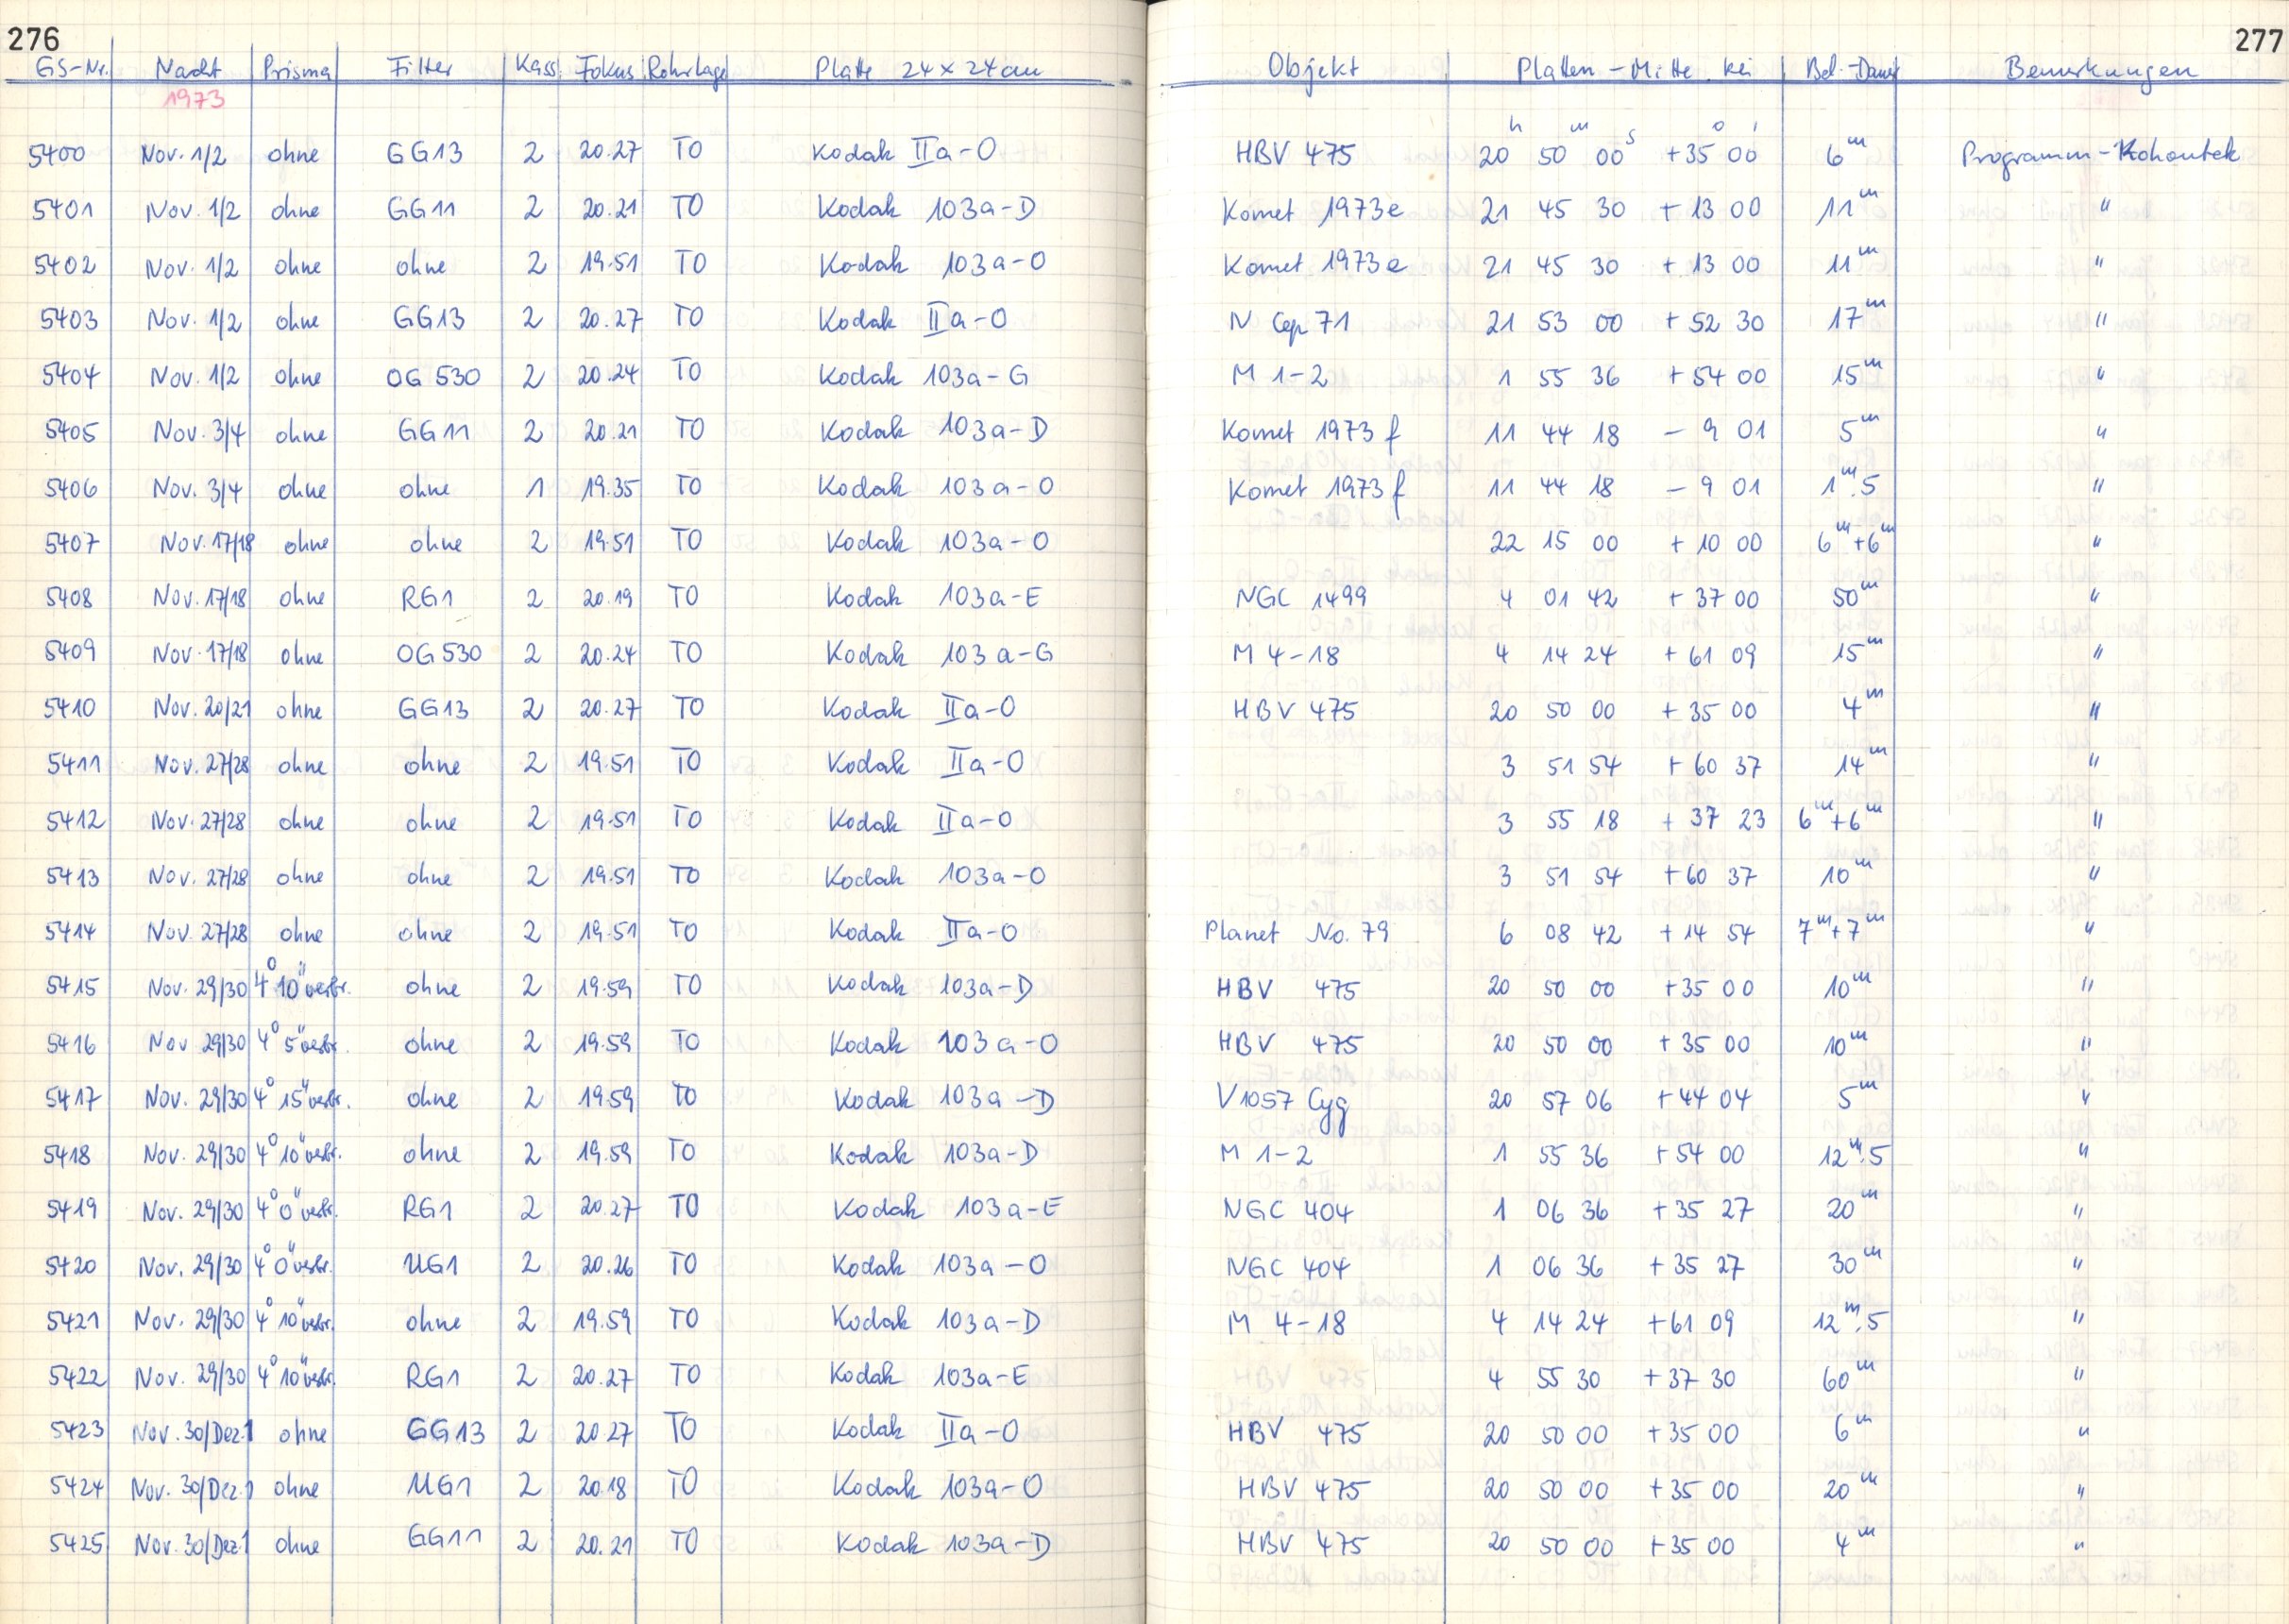 276 277
GS-Nr. Nacht Prisma Filter Kass. Fokus Rohrlage Platte 24 x 24 cm Objekt Platten-Mitte bei Bel.-Dauer Bemerkungen
1973
h m s ° '
5400 Nov. 1/2 ohne GG13 2 20.27 TO Kodak IIa-O HBV 475 20 50 00 +35 00 6m Programm-Kohoutek
5401 Nov. 1/2 ohne GG11 2 20.21 TO Kodak 103a-D Komet 1973e 21 45 30 +13 00 11m "
5402 Nov. 1/2 ohne ohne 2 19.51 TO Kodak 103a-O Komet 1973e 21 45 30 +13 00 11m "
5403 Nov. 1/2 ohne GG13 2 20.27 TO Kodak IIa-O N Cep 71 21 53 00 +52 30 17m "
5404 Nov. 1/2 ohne OG 530 2 20.24 TO Kodak 103a-G M 1-2 1 55 36 +54 00 15m "
5405 Nov. 3/4 ohne GG11 2 20.21 TO Kodak 103a-D Komet 1973f 11 44 18 -9 01 5m "
5406 Nov. 3/4 ohne ohne 1 19.35 TO Kodak 103a-O Komet 1973f 11 44 18 -9 01 1m.5 "
5407 Nov. 17/18 ohne ohne 2 19.51 TO Kodak 103a-O 22 15 00 +10 00 6m+6m "
5408 Nov. 17/18 ohne RG1 2 20.19 TO Kodak 103a-E NGC 1499 4 01 42 +37 00 50m "
5409 Nov. 17/18 ohne OG 530 2 20.24 TO Kodak 103a-G M 4-18 4 14 24 +61 09 15m "
5410 Nov. 20/21 ohne GG13 2 20.27 TO Kodak IIa-O HBV 475 20 50 00 +35 00 4m "
5411 Nov. 27/28 ohne ohne 2 19.51 TO Kodak IIa-O 3 51 54 +60 37 14m "
5412 Nov. 27/28 ohne ohne 2 19.51 TO Kodak IIa-O 3 55 18 +37 23 6m+6m "
5413 Nov. 27/28 ohne ohne 2 19.51 TO Kodak 103a-O 3 51 54 +60 37 10m "
5414 Nov. 27/28 ohne ohne 2 19.51 TO Kodak IIa-O Planet No. 79 6 08 42 +14 54 7m+7m "
5415 Nov. 29/30 4° 10" verbr. ohne 2 19.59 TO Kodak 103a-D HBV 475 20 50 00 +35 00 10m "
5416 Nov 29/30 4° 5" verbr. ohne 2 19.59 TO Kodak 103a-O HBV 475 20 50 00 +35 00 10m "
5417 Nov. 29/30 4° 15" verbr. ohne 2 19.59 TO Kodak 103a-D V1057 Cyg 20 57 06 +44 04 5m "
5418 Nov. 29/30 4° 10" verbr. ohne 2 19.59 TO Kodak 103a-D M 1-2 1 55 36 +54 00 12m.5 "
5419 Nov. 29/30 4° 0" verbr. RG1 2 20.27 TO Kodak 103a-E NGC 404 1 06 36 +35 27 20m "
5420 Nov. 29/30 4° 0" verbr. UG1 2 20.26 TO Kodak 103a-O NGC 404 1 06 36 +35 27 30m "
5421 Nov. 29/30 4° 10" verbr. ohne 2 19.59 TO Kodak 103a-D M 4-18 4 14 24 +61 09 12m.5 "
5422 Nov. 29/30 4° 10" verbr. RG1 2 20.27 TO Kodak 103a-E HBV 475 4 55 30 +37 30 60m "
5423 Nov. 30/Dez.1 ohne GG13 2 20.27 TO Kodak IIa-O HBV 475 20 50 00 +35 00 6m "
5424 Nov. 30/Dez.1 ohne UG1 2 20.18 TO Kodak 103a-O HBV 475 20 50 00 +35 00 20m "
5425 Nov. 30/Dez.1 ohne GG11 2 20.21 TO Kodak 103a-D HBV 475 20 50 00 +35 00 4m "